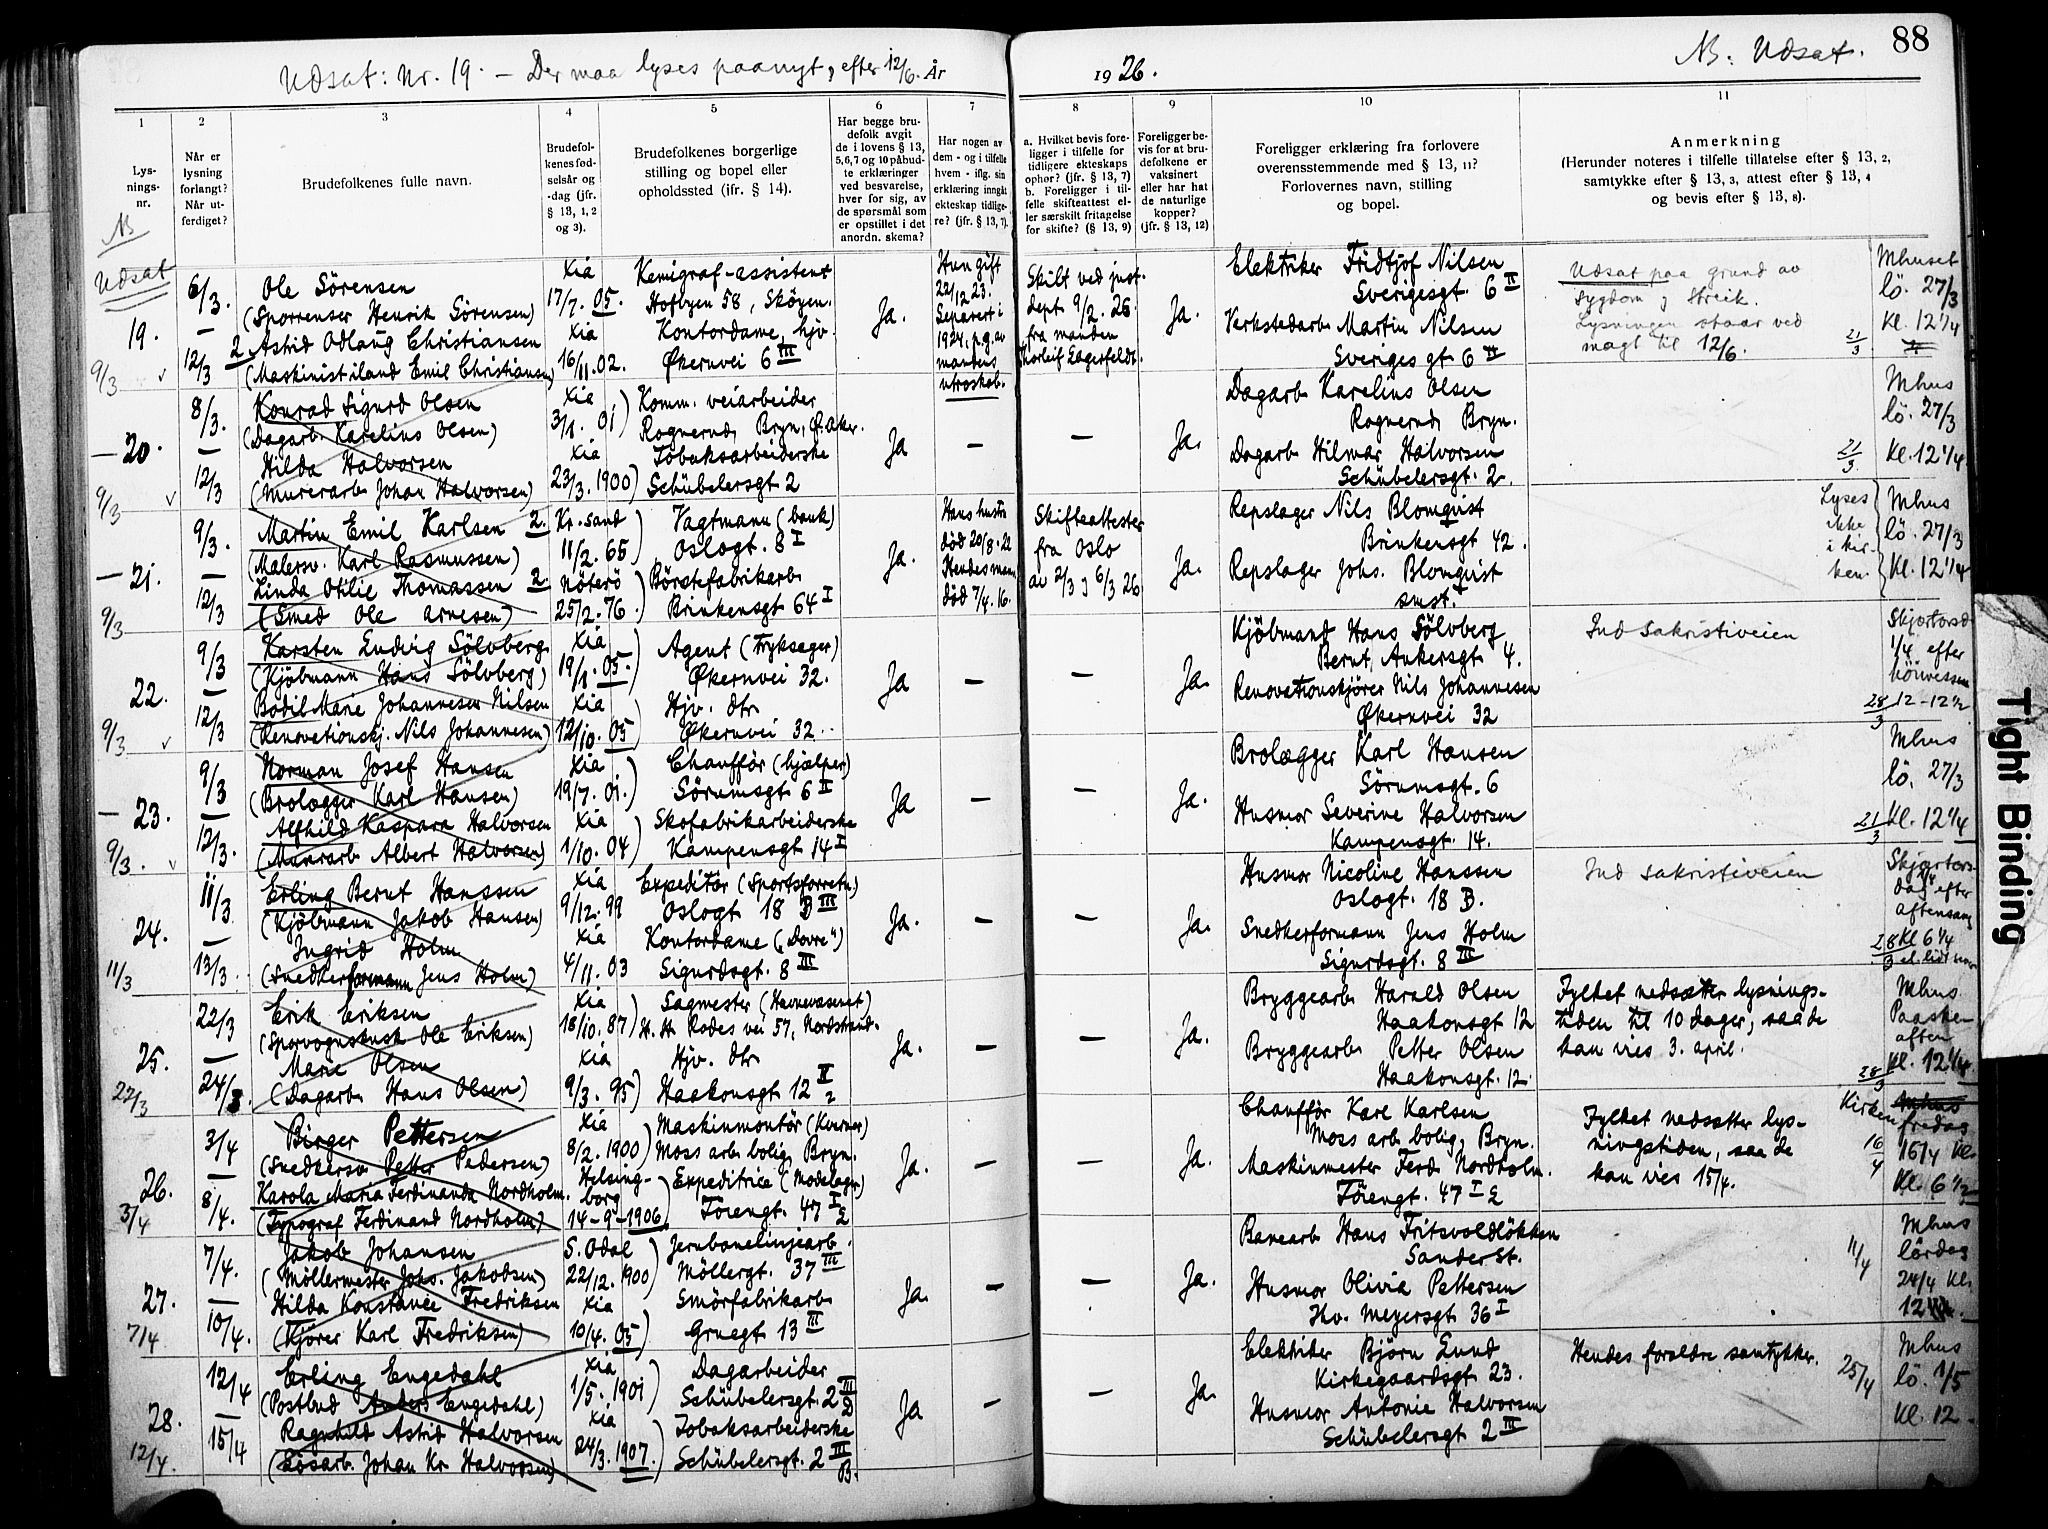 Udsat: Nr. 19. — Der maa lyses paanyt, efter 12/6. År
1926.
NB: Udsat.
88
1 2 3 4 5 6 7 8 9 10 11
Lys-
nings-
nr.
Når er
lysning
forlangt?
Når ut-
ferdiget?
Brudefolkenes fulle navn.
Brudefol-
kenes fød-
selsår og
-dag (jfr.
§ 13, 1, 2
og 3).
Brudefolkenes borgerlige
stilling og bopel eller
opholdssted (jfr. § 14).
Har begge bru-
defolk avgit
de i lovens § 13,
5,6,7 og 10 påbud-
te erklæringer
ved besvarelse,
hver for sig, av
de spørsmål som
er opstillet i det
anordn. skema?
Har nogen av
dem - og i tilfelle
hvem - iflg. sin
erklæring inngåt
ekteskap tidlige-
re? (jfr. § 13, 7).
a. Hvilket bevis fore-
ligger i tilfelle for
tidligere ekteskaps
ophør? (jfr. § 13, 7)
b. Foreligger i til-
felle skifteattest el-
ler særskilt fritagelse
for skifte? (§ 13, 9)
Foreligger be-
vis for at bru-
defolkene er
vaksinert
eller har hat
de naturlige
kopper?
(jfr. § 13, 12)
Foreligger erklæring fra forlovere
overensstemmende med § 13, 11?
Forlovernes navn, stilling
og bopel.
Anmerkning
(Herunder noteres i tilfelle tillatelse efter § 13, 2,
samtykke efter § 13, 3, attest efter § 13, 4
og bevis efter § 13, 8).
NB
Udsat
19.
9/3
6/3.
—
12/3
Ole Sörensen
(Sporrenser Henrik Sörensen)
2 Astrid Odlaug Christiansen
(Maskinist iland Emil Christiansen)
Xia
17/7. 05.
Xia
16/11. 02.
Kemigraf-assistent
Hofbyen 58, Sköyen.
Kontordame, hjv.
Økernvei 6 III
Ja.
Hun gift
22/12 23.
Separert i
1924. p.g.av
mandens
utroskab.
Skilt ved just.
dept. 9/2. 26.
fra manden
Thorleif Lagerfeldt.
Ja.
Elektriker Fridtjof Nilsen
Sverigesgt. 6 II
Verkstedarb. Martin Nilsen
Sverigesgt. 6 II
Udsat paa grund av
sygdom, streik.
Lysningen staar ved
magt til 12/6.
21/3
Mhuset
lö. 27/3
Kl. 12 1/4
—20.
9/3
8/3.
—
12/3
Konrad Sigurd Olsen
(Dagarb. Karelius Olsen)
Hilda Halvorsen
(Murerarb. Johan Halvorsen)
Xia
3/8. 01)
Xia
23/3. 1900)
Komm. veiarbeider
Rognerud, Bryn, Ø. Aker.
Tobaksarbeiderske
Schübelersgt 2
Ja
—
—
Ja.
Dagarb. Karelius Olsen
Rognerud Bryn.
Dagarb. Hilmar Halvorsen
Schübelersgt. 2.
21/3
Mhus
lö. 27/3
Kl. 12 1/4
—21.
9/3
9/3.
—
12/3
Martin Emil Karlsen 2.
(Malersv. Karl Rasmussen)
Linda Otilie Thomassen 2.
(Smed Ole Arnesen)
Kr.sand
11/2. 65)
Nöterö
25/2. 76)
Vagtmann (bank)
Oslogt. 8 I
Börstefabrikarb.
Brinkensgt 64 I
Ja.
Hans hustr
död 20/8. 22
Hendes man
död 7/4. 16.
Skifteattester
fra Oslo
av 2/3 og 6/3 26
Ja.
Repslager Nils Blomqvist
Brinkensgt 42.
Repslager Johs. Blomqvist
smst.
Lyses
ikke
i kir-
ken.
Mhus
lö. 27/3
Kl. 12 1/4
22.
9/3
9/3
—
12/3
Karsten Ludvig Sölvberg
(Kjöbmann Hans Sölvberg)
Bodil Marie Johannesen Nilsen
(Renovationskj. Nils Johannesen)
Xia
19/8. 05.)
Xia
12/10. 05)
Agent (Tryksager)
Økernvei 32.
Hjv. dtr
Økernvei 32.
Ja
—
—
Ja.
Kjöbmand Hans Sölvberg
Bernt Ankersgt 4.
Renovationskjörer Nils Johannesen
Økernvei 32
Ind Sakristiveien
28/3
Skjærtorsd
1/4 efter
höimessen
12-12 1/2
—23.
9/3.
9/3
—
12/3.
Norman Josef Hansen
(Brolægger Karl Hansen)
Alfhild Kaspara Halvorsen
(Murarb. Albert Halvorsen)
Xia
19/7. 01.)
Xia
1/10. 04)
Chaufför (hjælper)
Sörumsgt 6 II
Skofabrikarbeiderske
Kampensgt 14 I
Ja
—
—
Ja.
Brolægger Karl Hansen
Sörumsgt. 6
Husmor Severine Halvorsen
Kampensgt. 14.
21/3
Mhus
lö. 27/3
Kl. 12 1/4
24.
11/3
11/3
—
13/3.
Erling Bernt Hanssen
(Kjöbmann Jakob Hansen)
Ingrid Holm
(Snedkerformann Jens Holm)
Xia
9/12. 99
Xia
4/11. 03
Expeditör (Sportsforretn.)
Oslogt 18 B III
Kontordame („Dovre")
Sigurdsgt. 8 III
Ja.
—
—
Ja.
Husmor Nicoline Hanssen
Oslogt. 18 B.
Snedkerformann Jens Holm
Sigurdsgt. 8 III
Ind sakristiveien
28/3
Skjærtors-
dag 1/4 efter
aftensang
Kl 6 1/4
el. lidt nær
25.
22/3
22/3
—
24/3.
Erik Eriksen
(Sporvognskusk Ole Eriksen)
Marie Olsen
(Dagarb. Hans Olsen)
Xia
18/10. 87)
Xia
9/3. 95)
Sagmester (Havnevæsenet)
H. H. Rodes vei 57, Nordstrand.
Hjv. dtr
Haakonsgt 12 II
Ja.
—
—
Ja.
Bryggearb. Harald Olsen
Haakonsgt 12
Bryggearb. Petter Olsen
Haakonsgt. 12.
Fylket nedsætter lysnings-
tiden til 10 dager, saa de
kan vies 3. april.
28/3
Mhus
Paaske-
aften
Kl. 12 1/4
26.
3/4
3/4
—
8/4.
Birger Pettersen
(Snedkersv Petter Pedersen)
Karola Maria Ferdinanda Nordholm.
(Typograf Ferdinand Nordholm)
Xia
8/2. 1900)
Helsing-
borg
14-9-1906)
Maskinmontör (Kværner)
Moss arb. bolig, Bryn.
Expeditrice (Modelager)
Töiengt. 47 I
Ja.
—
—
Ja.
Chaufför Karl Karlsen
Moss arb. bolig, Bryn.
Maskinmester Ferd. Nordholm.
Töiengt. 47 I
Fylket nedsætter lys-
nivgstiden, saa de
kan vies 15/4.
Kirken
16/4
Mhus
fredag
16/4 Kl.
Kl. 6 1/2
27.
7/4
7/4.
—
10/4.
Jakob Johansen
(Möllermester Johs. Jakobsen)
Hilda Konstance Fredriksen
(Kjörer Karl Fredriksen)
S. Odal
22/12. 1900)
Xia
10/4. 05)
Jernbanelinjearb.
Möllergt. 37 III
Smörfabrikarb.
Gruegt 13 III
Ja.
—
—
Ja.
Banearb. Hans Fritsvoldlökken
Sander st.
Husmor Olivia Pettersen
Thv. Meyersgt 36 I
11/4
Mhus
lördag
24/4 Kl.
12
28.
12/4.
12/4
—
15/4
Erling Engedahl
(Postbud Anders Engedahl)
Ragnhild Astrid Halvorsen
(Lösarb. Johan Kr. Halvorsen)
Xia
1/5. 1901)
Xia
24/3. 1907.)
Dagarbeider
Schübelersgt. 2 III
Tobaksarbeiderske
Schübelersgt. 2 III
B.
Ja
—
—
Ja.
Elektriker Björn Lund
Kirkegaardsgt 23.
Husmor Antonie Halvorsen
Schübelersgt 2 III
Hendes foraldre samtykker.
25/4
Mhus
lö. 1/5
Kl. 12
Tight Binding